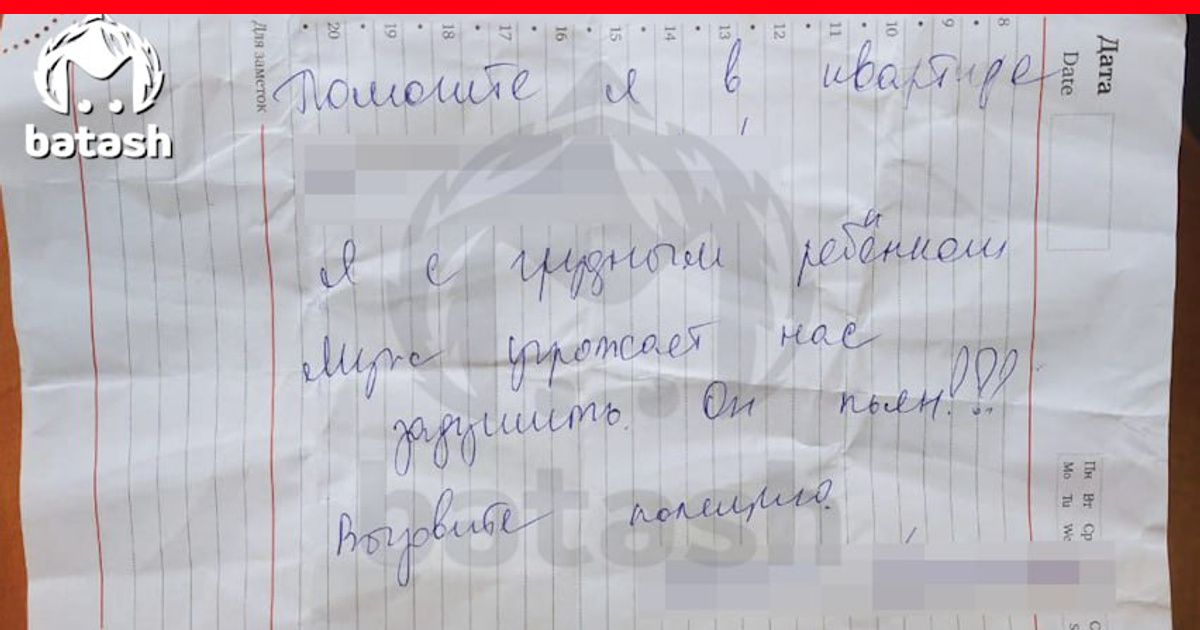 batash
Для заметок
20
19
18
17
16
15
14
13
12
11
10
9
8
Дата
Date
Помоште я в квартире
Я с грудным ребёнком
Муж угрожает нас
задушить. Он пьян!!!
Вызовите полицию.
batash
Пн Вт Ср
Mo Tu We